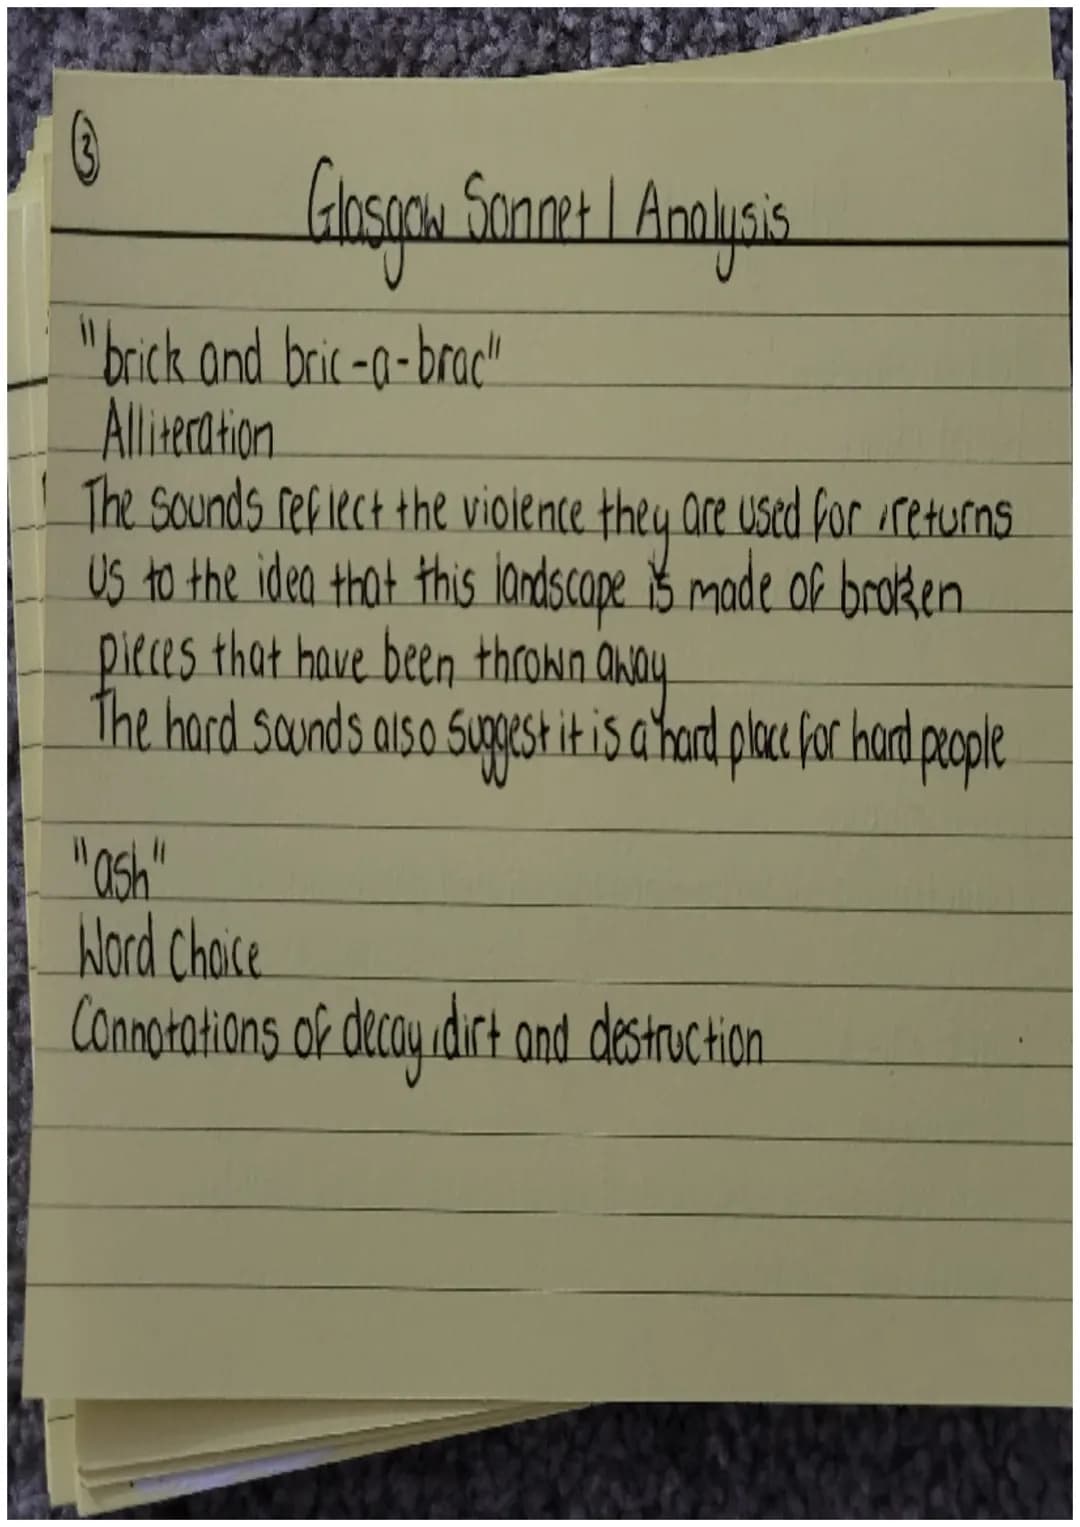 3
Glasgow Sonnet I Analysis
"brick and bric-a-brac"
Alliteration
The sounds reflect the violence they are used for, returns
us to the idea that this landscape is made of broken
pieces that have been thrown away
The hard sounds also suggest it is a hard place for hard people
"ash"
Word Choice
Connotations of decay, dirt and destruction